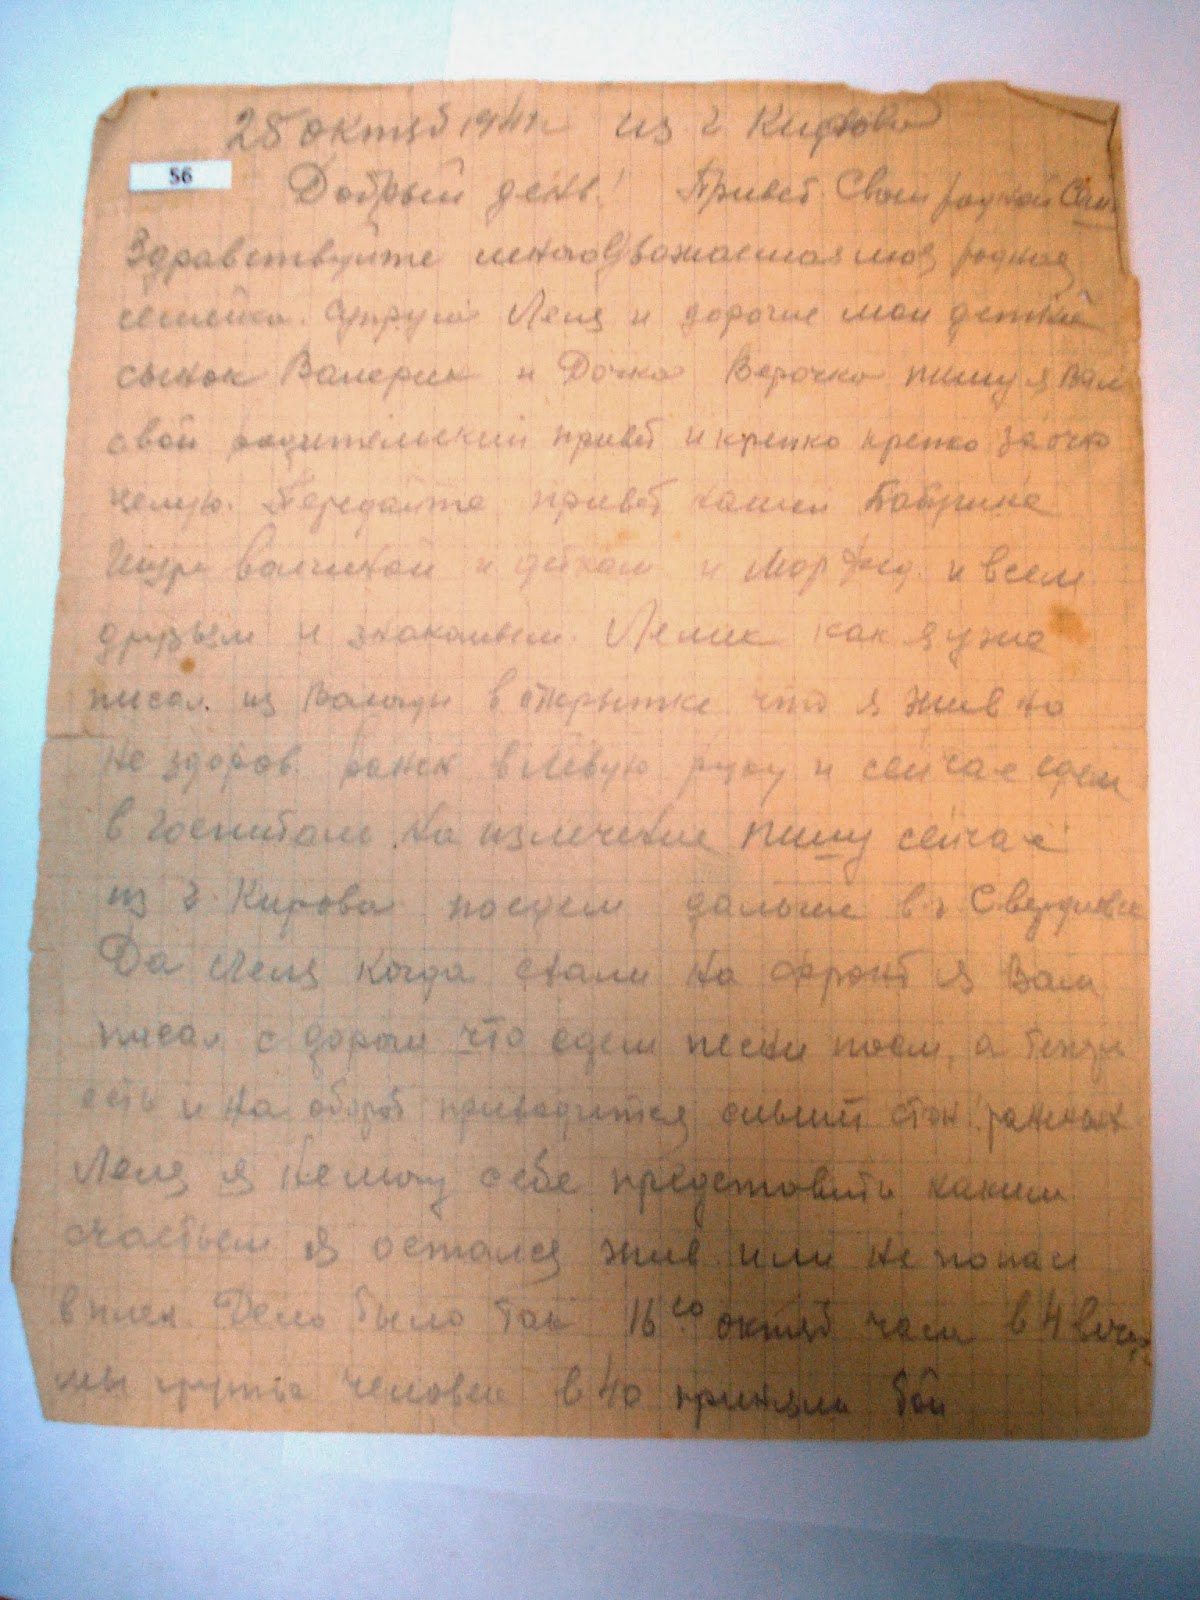 25 октяб 1941г из г. Кирова
56
Добрый день! Привет Своей родной
Здравствуйте многоуважаемая моя родная
семейка. Супруга Леля и дорогие мои детки
сынок Валерик и Дочка Верочка пишу я Вам
свой родительский привет и крепко крепко заочно
целую. Передайте привет нашей
и деткам и и всем
друзьям и знакомым. Лелик как я уже
писал из Вологды в открытке что я жив но
не здоров. ранен в левую руку и сейчас едем
в госпиталь на излечение пишу сейчас
из г. Кирова поедем дальше в г. Свердловск
Да Леля когда ехали на фронт я Вам
писал с дороги что едем песни поем, а теперь
есть и на оборот приводится слышать стон раненых
Леля я не могу себе предстовить каким
счастьем я остался жив или не попал
в плен. Дело было так 16го октяб часа в 4 вечера
мы группа человек в 40 приняли бой